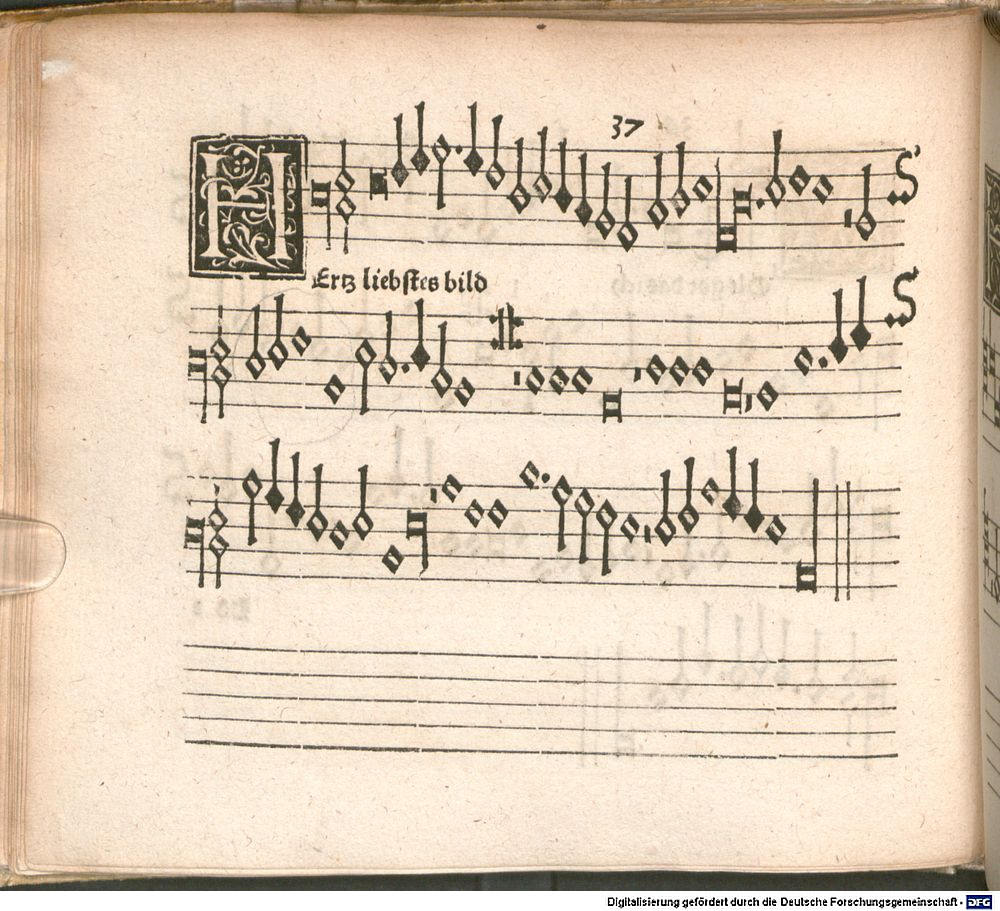 37
HErtz liebstes bild
Digitalisierung gefördert durch die Deutsche Forschungsgemeinschaft - DFG